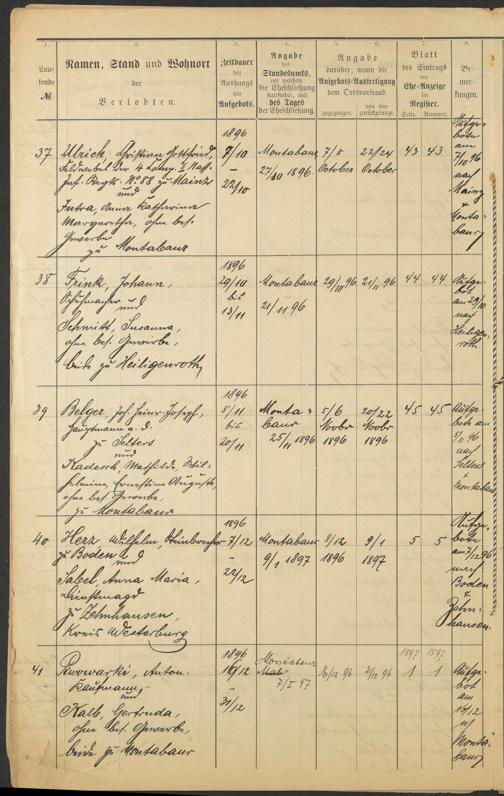 1. 2. 3. 4. 5. 6. 7. 8.
Lau-
fende
№
Namen, Stand und Wohnort
der
Verlobten.
Zeitdauer
des
Aushangs
des
Aufgebots.
Angabe
des
Standesamts,
vor welchem
die Eheschließung
stattfindet, und
des Tages
der Eheschließung.
Angabe
darüber, wann die
Aufgebots-Ausfertigung
dem Ortsvorstand
zugegangen.
von ihm
zurückgelangt.
Blatt
des Eintrags
der
Ehe-Anzeige
im
Register.
Seite. Nummer.
Be-
mer-
kungen.
37
Ulrich, Christian Gottfried,
Feldwebel der 4 Komp. I Nass.
Inf. Regts. No 88 zu Mainz
und
Intra, Anna Katharina
Margaretha, ohne bes.
Gewerbe
zu Montabaur
1896
7/10
–
22/10
Montabaur
27/10 1896
7/8
October
22/24
October
43 43
Aufge-
bote
am
7/10 96
nach
Mainz
&
Monta-
baur
38
Frink, Johann,
Schuhmacher
und
Schmitt, Susanna,
ohne bes. Gewerbe,
beide zu Heiligenroth,
1896
29/10
bis
13/11
Montabaur
21/11 96
29/10 96
21/11 96
44 44
Aufge-
bot
am 29/10
nach
Heiligen-
roth.
39
Belger, Joh. Heinr. Joseph,
Hauptmann a. d.
zu Selters
und
Kadesch, Mathilde, Wil-
helmine, Ernestine Auguste
ohne bes. Gewerbe,
zu Montabaur
1896
5/11
bis
20/11
Monta-
baur
25/11 1896
5/6
Novbr
1896
20/22
Novbr
1896
45 45
Aufge-
bote am
5/11 96
nach
Selters
+
Montabaur
40
Herz Wilhelm, Steinbrecher
zu Boden
und
Sabel, Anna Maria,
Dienstmagd
zu Zehnhausen,
Kreis Westerburg
1896
7/12
–
22/12
Montabaur
9/1 1897
9/12
1896
9/1
1897
5 5
Aufge-
bote
am 7/12 96
nach
Boden
&
Zehn-
hausen.
41
Anton.
Kaufmann,
und
Kalb, Gertruda,
ohne bes. Gewerbe,
beide zu Montabaur
1896
16/12
–
31/12
Montabaur
7/I 97
16/12 96
1897 1897
1 1
Aufge-
bot
am
Monta-
baur